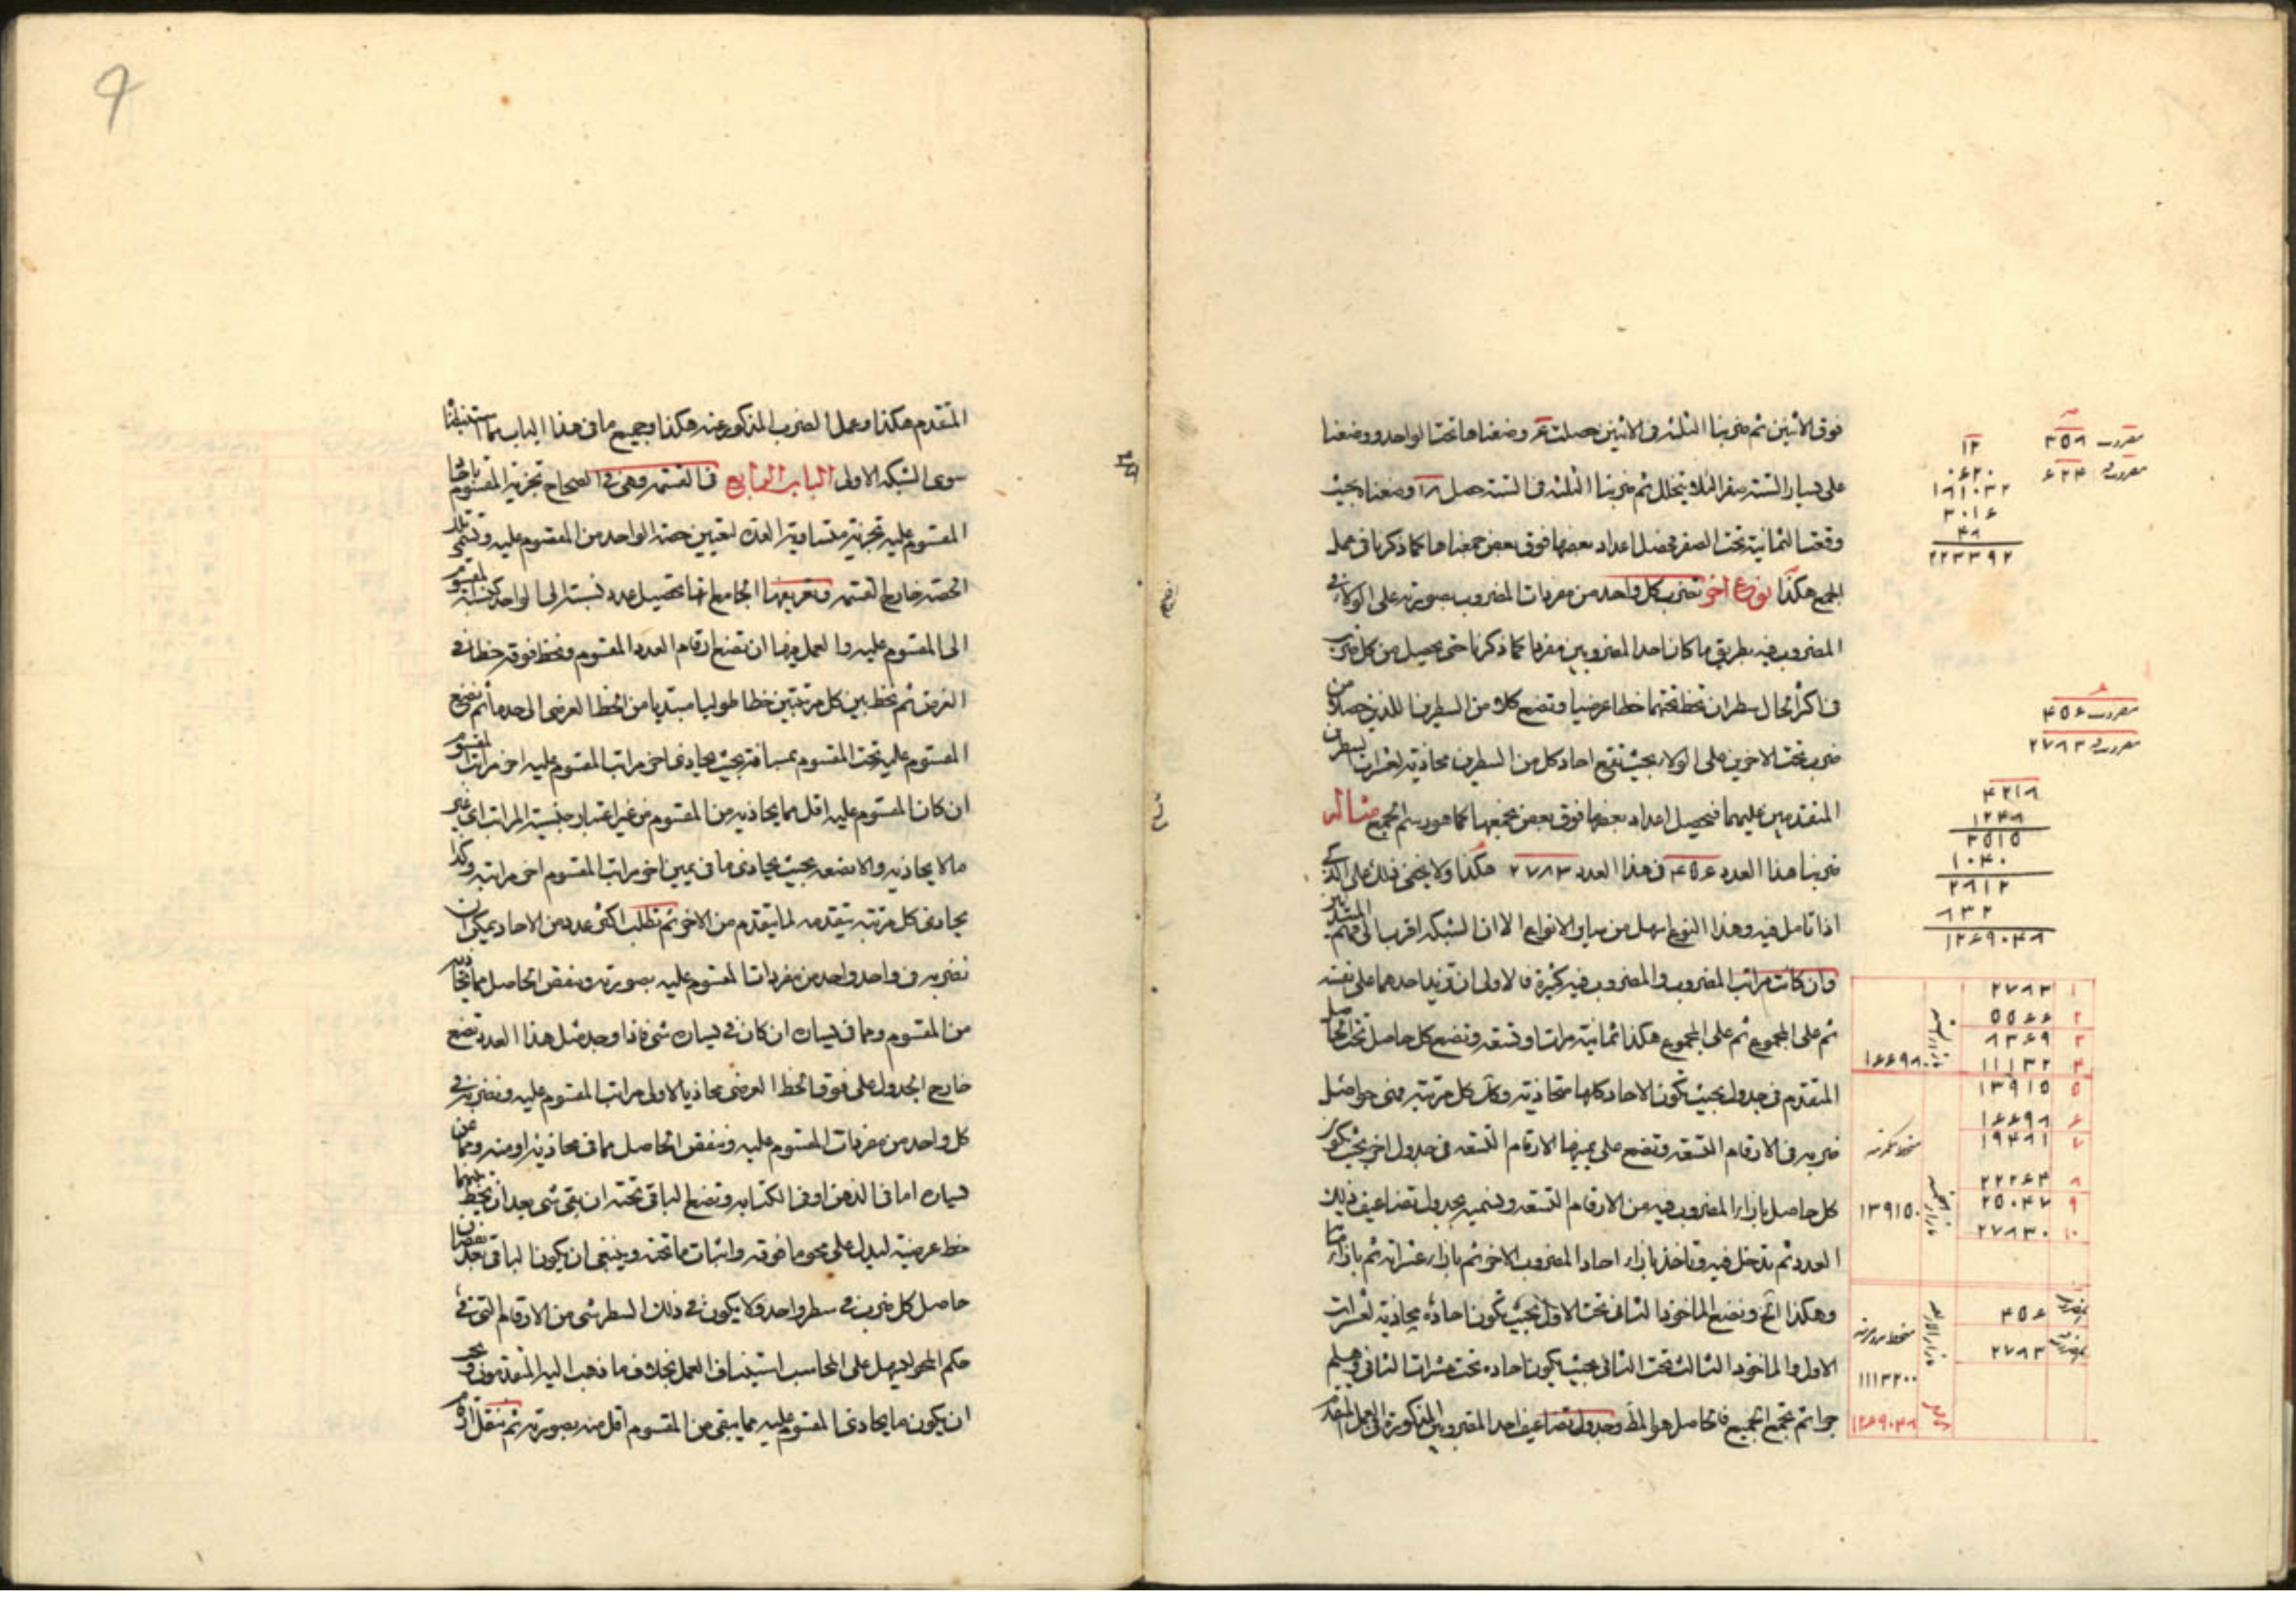 فوق الاثنين ثم ضربنا الثلثة فى الاثنين حصلت ۶ وضعناها تحت الواحد ووضعنا
على يسار الستة صفرا لئلا يتخلل ثم ضربنا الثلثة فى الستة حصل ۱۸ وضعناه بحيث
وقعت الثمانية تحت الصفر فحصل اعداد بعضها فوق بعض جمعناها كما ذكرنا فى عمل
الجمع هكذا نوع اخر نضرب كل واحد من مفردات المضروب بصورته على الولاء فى
المضروب فيه بطريق ما كان احد المضروبين مفردا كما ذكرنا حتى يحصل من كل ضرب
فى اكثر الحال سطران نخط تحتهما خطا عرضيا ونضع كلا من السطرين اللذين حصلا من
ضرب تحت الاخرين على الولاء بحيث تقع احاد كل من السطرين محاذية لعشرات سطرين
المتقدمين عليهما فيحصل اعداد بعضها فوق بعض نجمعها كما هو رسم الجمع مثاله
ضربنا هذا العدد ۴۵۶ فى هذا العدد ۲۷۸۳ هكذا ولا يخفى ذلك على الذكى
اذا تامل فيه وهذا النوع اسهل من ساير الانواع الا ان الشبكة اقرب الى فهم المبتدئين
وان كانت مراتب المضروب والمضروب فيه كثيرة فالاولى ان نزيد احدهما على نفسه
ثم على المجموع ثم على المجموع هكذا ثمانية مرات او تسعة ونضع كل حاصل تحت الحاصل
المتقدم فى جدول بحيث تكون الاحاد كلها متحاذية وكذا كل مرتبة فهى حواصل
ضربه فى الارقام التسعة ونضع على يمينها الارقام التسعة فى جدول اخر بحيث يكون
كل حاصل بازاء المضروب فيه من الارقام التسعة ونسميه بجدول تضاعيف ذلك
العدد ثم ندخل فيه وناخذ بازاء احاد المضروب الاخر ثم بازاء عشراته ثم بازاء مآته
وهكذا الخ ونضع الماخوذ الثانى تحت الاول بحيث تكون احاده محاذية لعشرات
الاول والماخوذ الثالث تحت الثانى بحيث يكون احاده تحت عشرات الثانى وهلم
جرا ثم نجمع الجميع فالحاصل هو المط وجدول تضاعيف احد المضروبين المذكورة فى العمل المتقدم
مضروب ۳۵۸
مضروب فيه ۶۲۴
۱۲
۰۶۲۰
۱۸۱۰۳۲
۳۰۱۶
۴۸
۲۲۳۳۹۲
مضروب ۴۵۶
مضروب فيه ۲۷۸۳
۴۲۱۸
۱۲۴۸
۳۵۱۵
۱۰۴۰
۲۸۱۲
۸۳۲
۱۲۶۹۰۴۸
۱ ۲۷۸۳
۲ ۵۵۶۶
۳ ۸۳۴۹
۴ ۱۱۱۳۲
۱۶۶۹۸
۵ ۱۳۹۱۵
۶ ۱۶۶۹۸
۷ ۱۹۴۸۱
۸ ۲۲۲۶۴
۹ ۲۵۰۴۷
۱۳۹۱۵۰
۱۰ ۲۷۸۳۰
۴۵۶
۲۷۸۳
۱۱۱۳۲۰۰
۱۲۶۹۰۴۸
المتقدم هكذا وعمل الضرب المذكور عنه هكذا وجميع ما فى هذا الباب مما استنبطنا
سوى الشبكة الاولى الباب الرابع فى القسمة وهى فى الصحاح تجزية المقسوم باجزاء
المقسوم عليه تجزية متساوية العدة لتعيين حصة الواحد من المقسوم عليه وتسمى تلك
الحصة خارج القسمة وتعريفها الجامع انها تحصيل عدد نسبته الى الواحد كنسبة المقسوم
الى المقسوم عليه والعمل فيها ان تضع ارقام العدد المقسوم ونخط فوقه خطا فى
العرض ثم نخط بين كل مرتبتين خطا طوليا مبتديا من الخط العرضى الى حد ما ثم نضع
المقسوم عليه تحت المقسوم بمسافة بحيث يحاذى اخر مراتب المقسوم عليه اخر مراتب المقسوم
ان كان المقسوم عليه اقل مما يحاذيه من المقسوم من غير اعتبار جنسية المراتب اى غير
ما لا يحاذيه والا نضعه بحيث يحاذى ما فى يمين اخر مراتب المقسوم اخر مراتبه وكذا
يحاذى كل مرتبة يتقدمه لما يتقدم من الاخر ثم نطلب اكثر عدد من الاحاد يمكن ان
نضربه فى واحد واحد من مفردات المقسوم عليه بصورته وننقص الحاصل مما يحاذيه
من المقسوم ومما فى يساره ان كان فى يساره شئ فاذا وجد مثل هذا العدد نضع
خارج الجدول على فوق الخط العرضى محاذيا لاول مراتب المقسوم عليه ونضربه فى
كل واحد من مفردات المقسوم عليه وننقص الحاصل مما فى محاذيه او منه ومما عن
يساره اما فى الذهن او فى الكتابة ونضع الباقى تحته ان بقى شئ بعد ان نخط بينهما
خط عرضية ليدل على محو ما فوقه واثبات ما تحته وينبغى ان يكون الباقى بعد نقصان
حاصل كل ضرب فى سطر واحد ولا يكون فى ذلك السطر شئ من الارقام التى فى
حكم المحو ليسهل على المحاسب استيناف العمل بخلاف ما ذهب اليه المتقدمون ويجب
ان يكون ما يحاذى المقسوم عليه مما يبقى من المقسوم اقل منه بصورته ثم ننقل ارقام